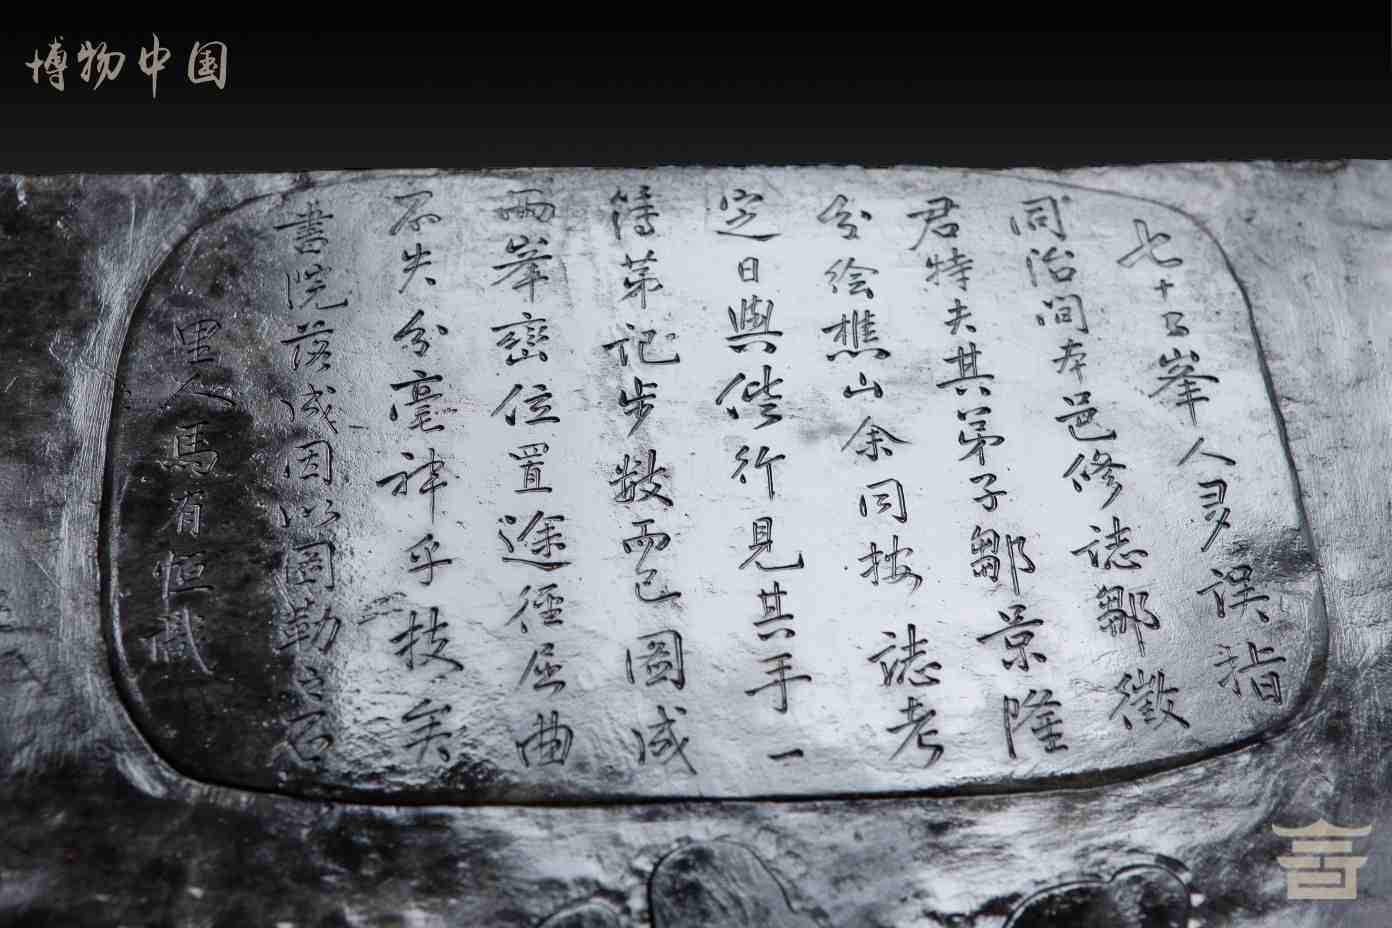 博物中国
七十二峯人多误指
同治间本邑修誌鄒徵
君特夫其弟子鄒景隆
分绘樵山余同按誌考
定日與偕行見其手一
簿第记步数而已圖成
而峯巒位置途徑屈曲
不失分毫神乎技矣
書院落成因以圖勒之石
里人馬有恒識